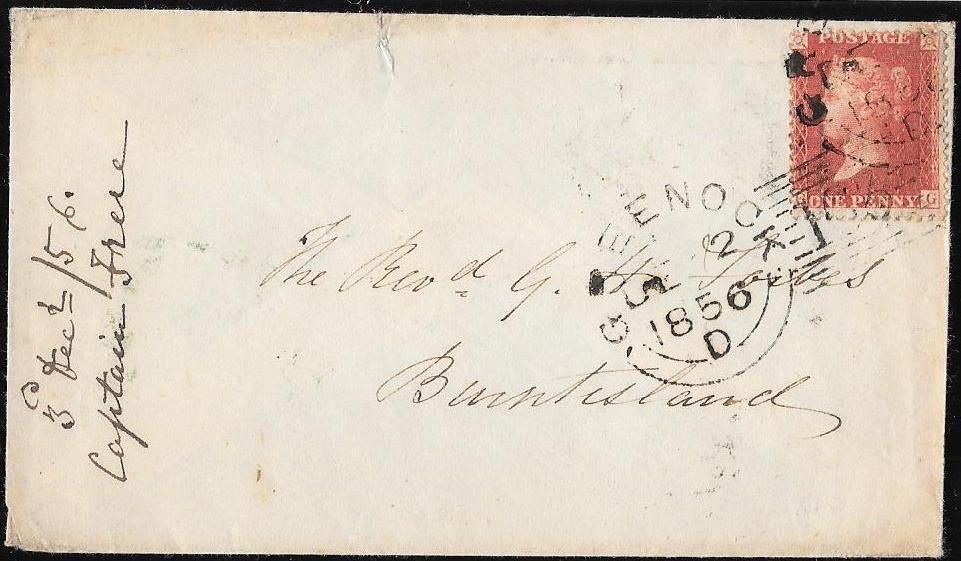 POSTAGE
ONE PENNY G
GREENOCK
2
1856
D
The Revd. G. H. Forbes
Burntisland
3 Decr/56.
Captain Frere